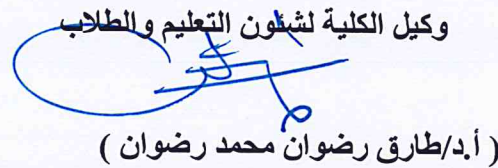 وكيل الكلية لشئون التعليم والطلاب
( أ.د/طارق رضوان محمد رضوان )